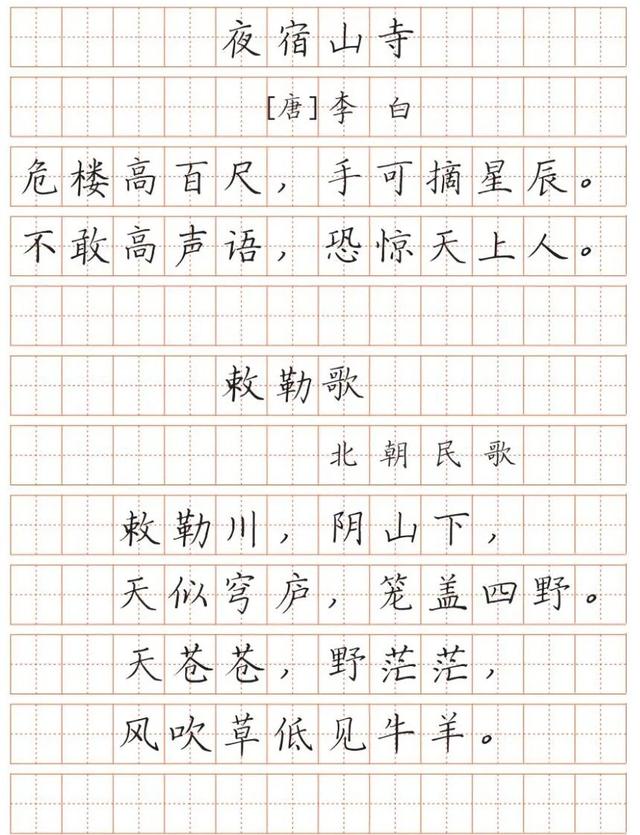 夜宿山寺
[唐]李 白
危楼高百尺，手可摘星辰。
不敢高声语，恐惊天上人。
敕勒歌
北朝民歌
敕勒川，阴山下，
天似穹庐，笼盖四野。
天苍苍，野茫茫，
风吹草低见牛羊。